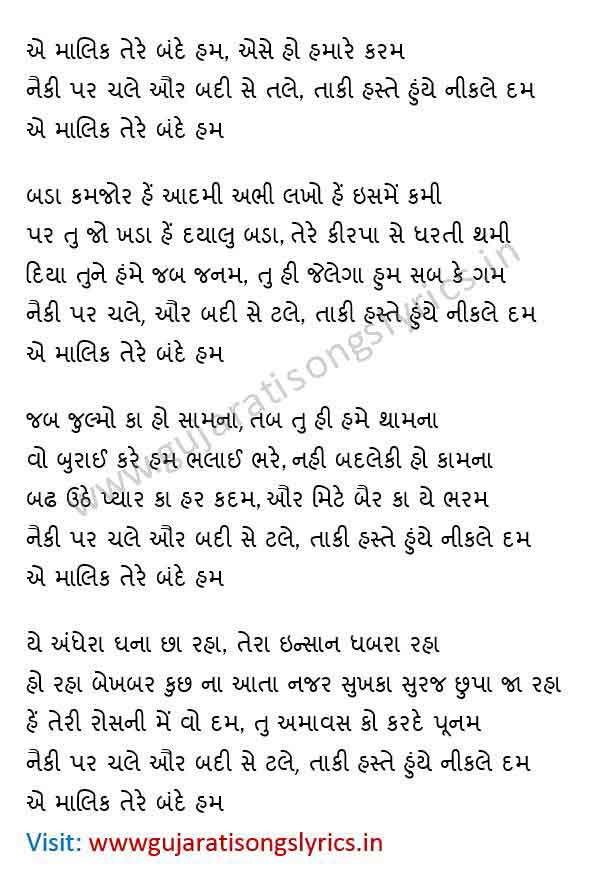 એ માલિક તેરે બંદે હમ, એસે હો હમારે કરમ
નૈકી પર ચલે ઔર બદી સે તલે, તાકી હસ્તે હુંયે નીકલે દમ
એ માલિક તેરે બંદે હમ
બડા કમજોર હેં આદમી અભી લખો હેં ઇસમેં કમી
પર તુ જો ખડા હેં દયાલુ બડા, તેરે કીરપા સે ધરતી થમી
દિયા તુને હંમે જબ જનમ, તુ હી જેલેગા હુમ સબ કે ગમ
નૈકી પર ચલે, ઔર બદી સે ટલે, તાકી હસ્તે હુંયે નીકલે દમ
એ માલિક તેરે બંદે હમ
જબ જુલ્મો કા હો સામના, તબ તુ હી હમે થામના
વો બુરાઈ કરે હમ ભલાઈ ભરે, નહી બદલેકી હો કામના
બઢ ઉઠે પ્યાર કા હર કદમ, ઔર મિટે બૈર કા યે ભરમ
નૈકી પર ચલે ઔર બદી સે ટલે, તાકી હસ્તે હુંયે નીકલે દમ
એ માલિક તેરે બંદે હમ
યે અંધેરા ઘના છા રહા, તેરા ઇન્સાન ધબરા રહા
હો રહા બેખબર કુછ ના આતા નજર સુખકા સુરજ છુપા જા રહા
હેં તેરી રોસની મેં વો દમ, તુ અમાવસ કો કરદે પૂનમ
નૈકી પર ચલે ઔર બદી સે ટલે, તાકી હસ્તે હુંયે નીકલે દમ
એ માલિક તેરે બંદે હમ
Visit: wwwgujaratisongslyrics.in
www.gujaratisongslyrics.in